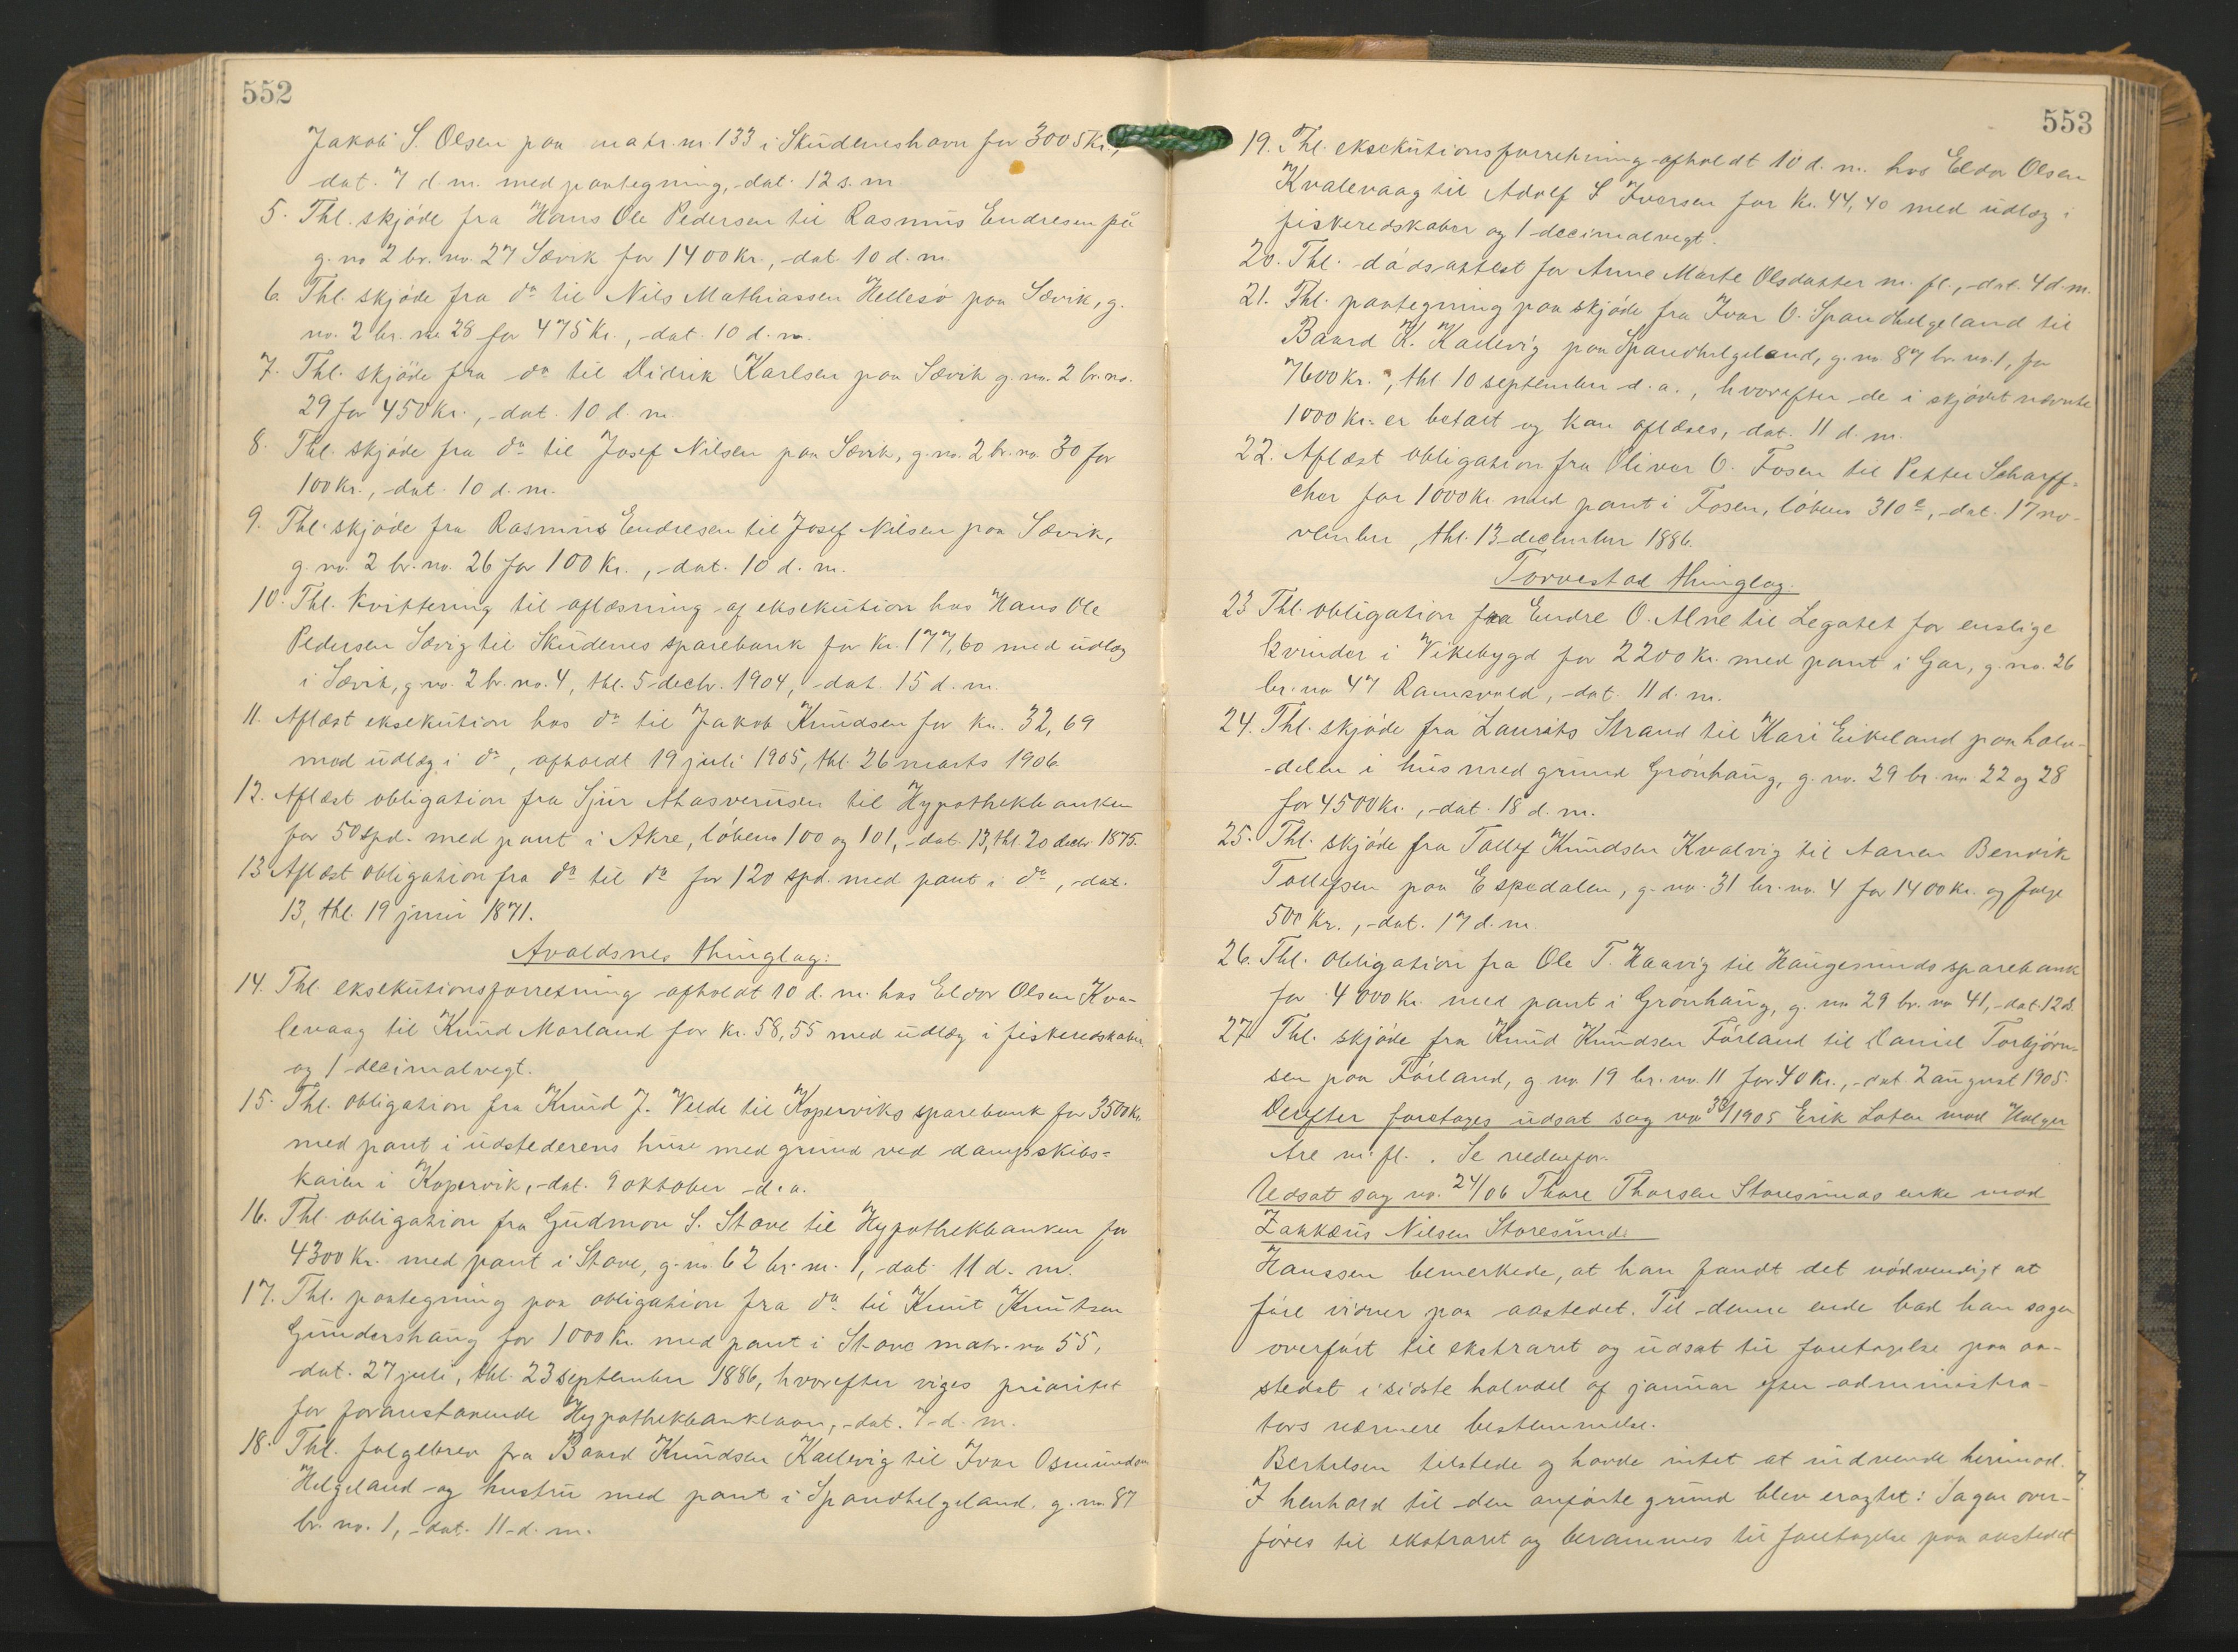 552
Jakob S. Olsen paa matr. nr. 133 i Skudeneshavn for 3005 kr.,
dat. 7 d. m. med paategning, dat. 12 s. m.
5. Thl. skjøde fra Hans Ole Pedersen til Rasmus Endresen på
g. no 2 br. no. 27 Sævik for 1400 kr., dat. 10 d. m.
6. Thl. skjøde fra do til Nils Mathiassen Hellesø paa Sævik, g.
no. 2 br. no 28 for 475 kr., dat. 10 d. m.
7. Thl. skjøde fra do til Didrik Karlsen paa Sævik g. no. 2 br. no.
29 for 450 kr., dat. 10 d. m.
8. Thl. skjøde fra do til Josef Nilsen paa Sævik, g. no. 2 br. no. 30 for
100 kr., dat. 10 d. m.
9. Thl. skjøde fra Rasmus Endresen til Josef Nilsen paa Sævik,
g. no. 2 br. no. 26 for 100 kr., dat. 10 d. m.
10. Thl. kvittering til aflæsning af eksekution hos Hans Ole
Pedersen Sævig til Skudenes sparebank for kr. 177,60 med udlæg
i Sævik, g. no. 2 br. no. 4, thl. 5 decbr. 1904, dat. 15 d. m.
11. Aflæst eksekution hos do til Jakob Knudsen for kr. 32,69
med udlæg i do, afholdt 19 juli 1905, thl. 26 marts 1906
12. Aflæst obligation fra Sjur Ahasverusen til Hypothekbanken
for 50 spd. med pant i Akre, løbeno 100 og 101, dat. 13, thl. 20 decbr. 1875.
13. Aflæst obligation fra do til do for 120 spd. med pant i do, dat.
13, thl. 19 juni 1871.
Avaldsnes thinglag:
14. Thl. eksekutionsforretning afholdt 10 d. m. hos Eldor Olsen Kva-
levaag til Knud Marland for kr. 58,55 med udlæg i fiskeredskaber
og 1 decimalvegt.
15. Thl. obligation fra Knud J. Velde til Koperviks sparebank for 3500 kr.
med pant i udstederens huse med grund ved dampskibs=
kaien i Kopervik, dat. 9 oktober d. a.
16. Thl. obligation fra Gudmon S. Stave til Hypothekbanken for
4300 kr. med pant i Stave, g. no. 62 br. nr. 1, dat. 11 d. m.
17. Thl. paategning paa obligation fra do til Knut Knutsen
Gundershaug for 1000 kr. med pant i Stave matr. no 55,
dat. 27 juli, thl. 23 september 1886, hvorefter viges prioritet
for foranstaaende Hypothekbanklaan, dat. 7 d. m.
18. Thl. følgebrev fra Baard Knudsen Kallevig til Ivar Osmundsen
Helgeland og hustru med pant i Spandhelgeland, g. no. 87
br. no. 1, dat. 11 d. m.
553
19. Thl. eksekutionsforretning afholdt 10 d. m. hos Eldor Olsen
Kvalevaag til Adolf S Ivarsen for kr. 44,40 med udlæg i
fiskeredskaber og 1 decimalvegt.
20. Thl. dødsattest for Anne Marte Olsdatter m. fl., dat. 4 d. m.
21. Thl. paategning paa skjøde fra Ivar O. Spandhelgeland til
Baard K. Kallevig paa Spandhelgeland, g. no. 87 br. no. 1, for
7600 kr., thl 10 september d. a., hvorefter de i skjødet nævnte
1000 kr. er betalt og kan aflæses, dat. 11 d. m.
22. Aflæst obligation fra Oliver O. Fosen til Petter Scharff=
cher for 1000 kr med pant i Fosen, løbeno 310 c, dat. 17 no-
vember, thl. 13 december 1886.
Torvestad thinglag.
23 Thl. obligation fra Endre O. Alne til Legatet for enslige
kvinder i Vikebygd for 2200 kr. med pant i Gar, g. no. 26
br. no 47 Ramsvold, dat. 11 d. m.
24. Thl. skjøde fra Laurits Strand til Kari Eikeland paa halv-
delen i hus med grund Grønhaug, g. no. 29 br. no. 22 og 28
for 4500 kr., dat. 18 d. m.
25. Thl. skjøde fra Tollef Knudsen Kvalvig til Aanen Bendik
Tollefsen paa Espedalen, g. no. 31 br. no. 4 for 1400 kr. og følge
500 kr., dat. 17 d. m.
26. Thl. obligation fra Ole T. Haavig til Haugesunds sparebank
for 4000 kr. med pant i Grønhaug, g. no 29 br. no 41, dat. 12 ds.
27 Thl. skjøde fra Knud Knudsen Førland til Daniel Torbjørn-
sen paa Førland, g no. 19 br. no. 11 for 40 kr., dat. 2 august 1905.
Derefter foretages udsat sag no 38/1905 Erik Loten mod Holger
Are m. fl. . Se nedenfor.
Udsat sag no. 24/06 Thore Thorsen Storesunds enke mod
Zakkæus Nilsen Storesund.
Hanssen bemerkede, at han fandt det nødvendigt at
føre vidner paa aastedet. Til denne ende bad han sagen
overført til ekstraret og udsat til foretagelse paa aa-
stedet i sidste halvdel af januar efter administra-
tors nærmere bestemmelse.
Bertelsen tilstede og havde intet at indvende herimod.
I henhold til den anførte grund blev eragtet: Sagen over-
føres til ekstraret og berammes til foretagelse paa aastedet